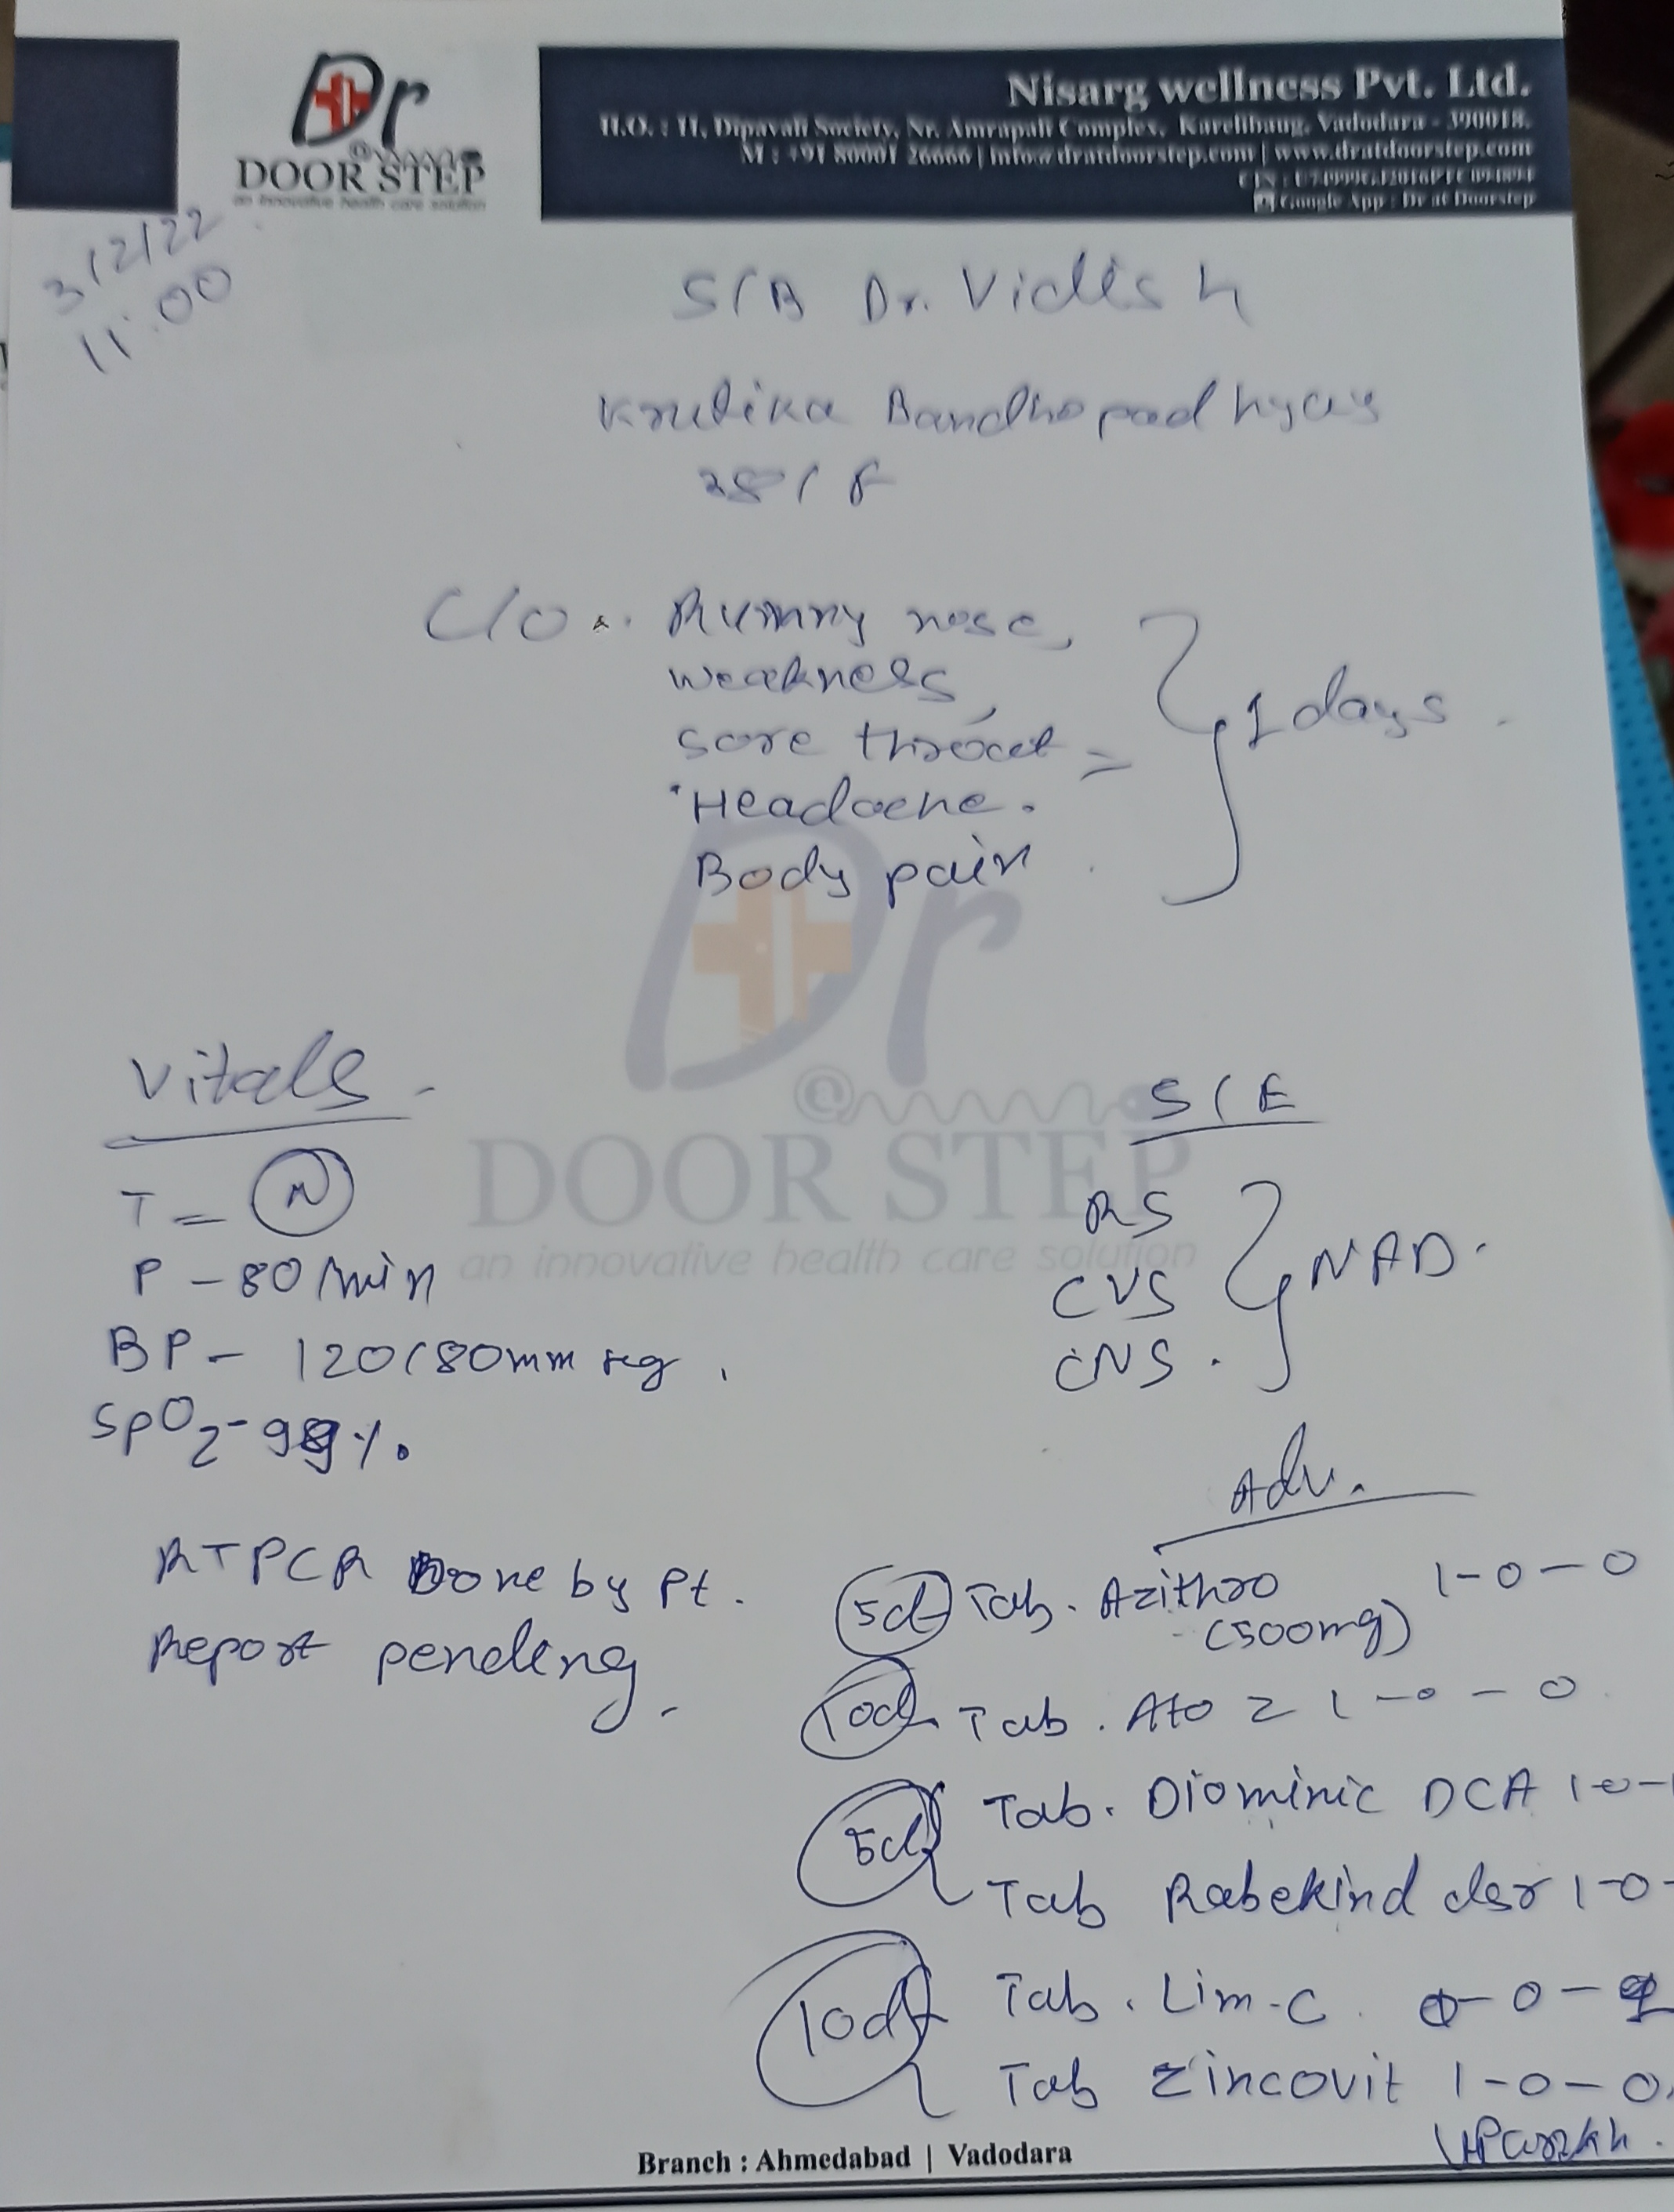 Dr
@
DOOR STEP
an innovative health care solution
Nisarg wellness Pvt. Ltd.
H.O. : 11, Dipavali Society, Nr. Amrapali Complex, Karelibaug, Vadodara - 390018.
M : +91 80001 26666 | info@dratdoorstep.com | www.dratdoorstep.com
Google App : Dr at Doorstep
3/2/22
11:00
S/B Dr. Vidish
Krutika Bandhopadhyay
28/F
C/O Runny nose,
weakness,
sore throat
Headache.
Body pain
1 days.
Dr
@
DOOR STEP
an innovative health care solution
Vitals -
T = N
P - 80/min
BP - 120/80mm Hg.
SpO2 - %.
S/E
RS
CVS
CNS.
NAD.
RTPCR Done by Pt.
Report pending.
Adv.
5d Tab. Azithro 1-0-0
(500mg)
10d Tab. A to Z 1-0-0
5d Tab. Diominic DCA 1-0-1
Tab Rabekind dsr 1-0-
10d Tab. Lim-C. 0-0-
Tab Zincovit 1-0-0
Branch : Ahmedabad | Vadodara